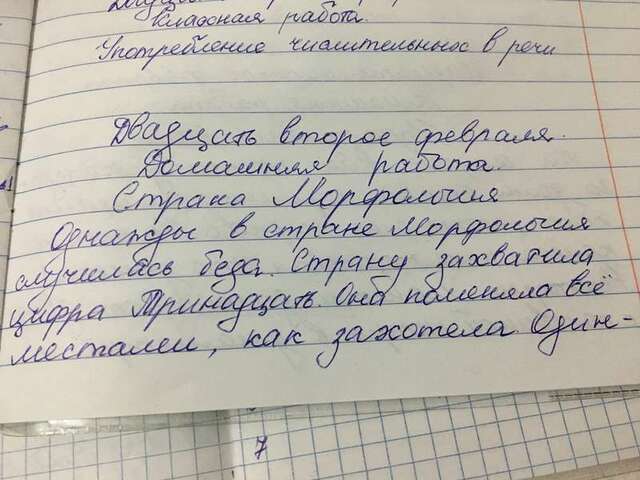 Классная работа.
Употребление числительных в речи
Двадцать второе февраля.
Домашняя работа
Страна Морфология
Однажды в стране Морфология
случилась беда. Страну захватила
цифра Тринадцать. Она поменяла всё
местами, как захотела. Один-
7